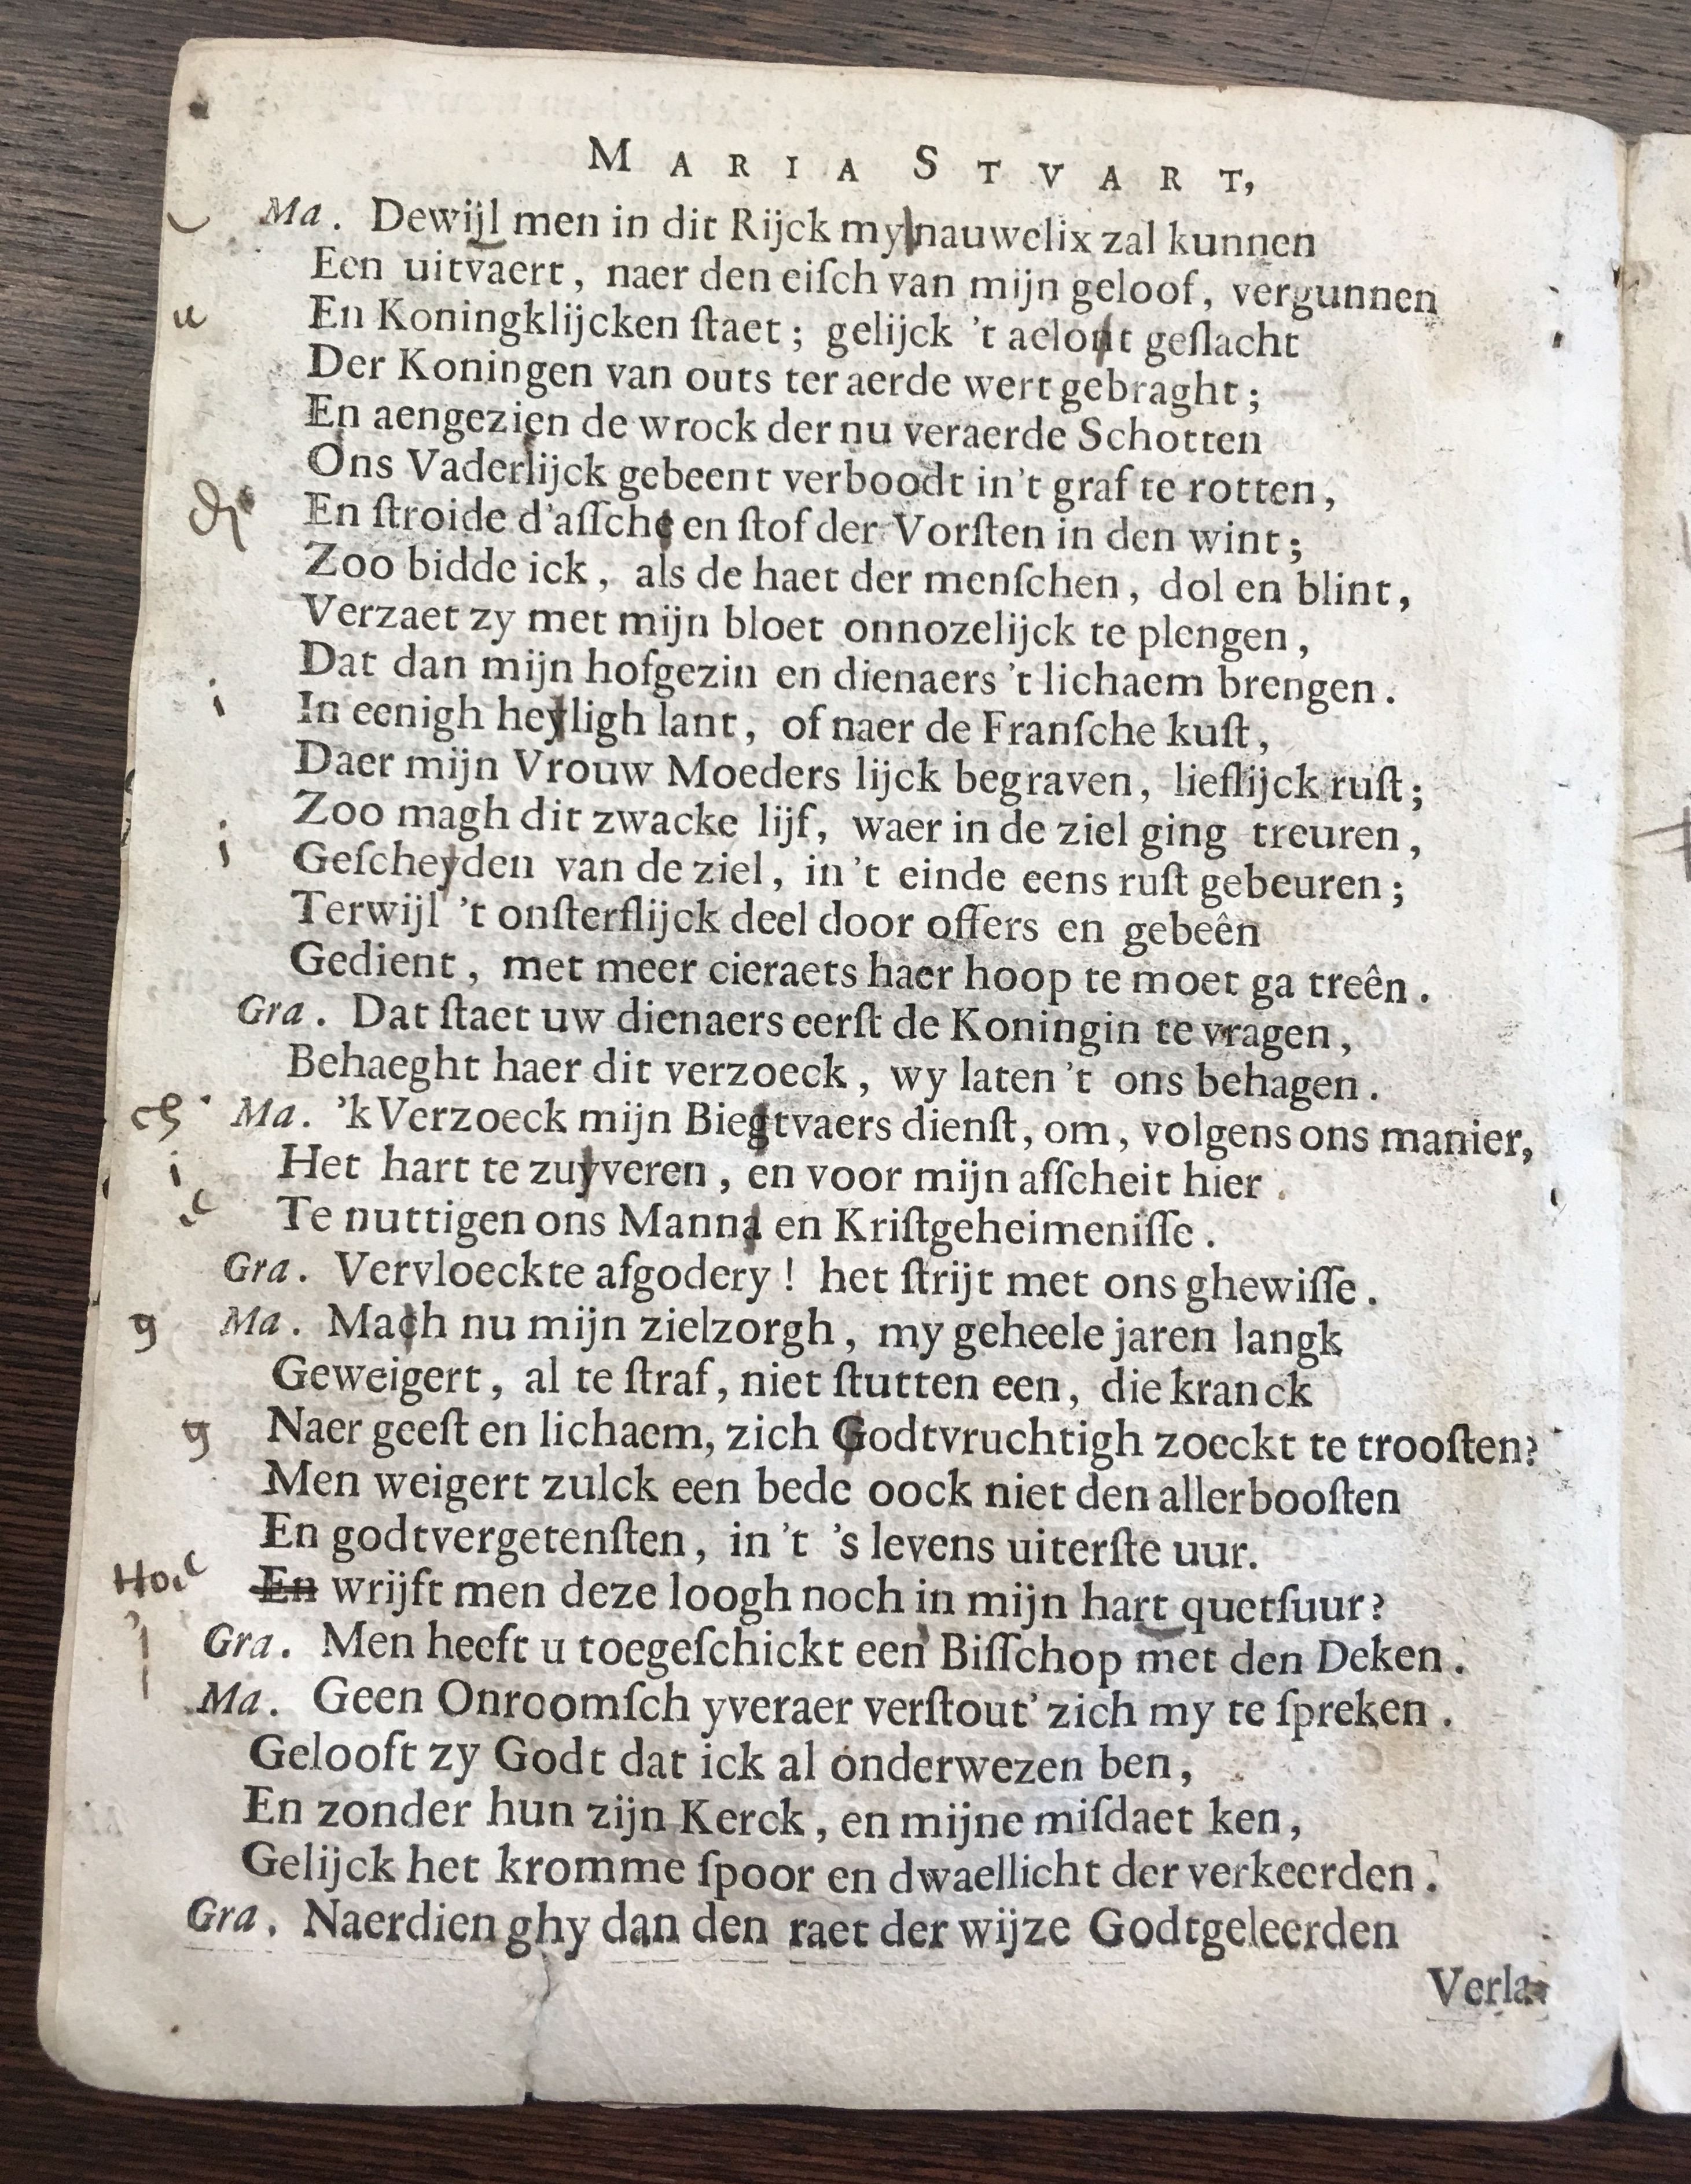 MARIA STVART,
Ma. Dewijl men in dit Rijck my nauwelix zal kunnen
Een uitvaert, naer den eiſch van mijn geloof, vergunnen
u En Koningklijcken ſtaet; gelijck 't aelont geſlacht
Der Koningen van outs ter aerde wert gebraght;
En aengezien de wrock der nu veraerde Schotten
Ons Vaderlijck gebeent verboodt in't graf te rotten,
En ſtroide d'aſſche en ſtof der Vorſten in den wint;
Zoo bidde ick, als de haet der menſchen, dol en blint,
Verzaet zy met mijn bloet onnozelijck te plengen,
Dat dan mijn hofgezin en dienaers 't lichaem brengen.
i In eenigh heyligh lant, of naer de Franſche kuſt,
Daer mijn Vrouw Moeders lijck begraven, lieflijck ruſt;
Zoo magh dit zwacke lijf, waer in de ziel ging treuren,
i Geſcheyden van de ziel, in 't einde eens ruſt gebeuren;
Terwijl 't onſterflijck deel door offers en gebeên
Gedient, met meer cieraets haer hoop te moet ga treên.
Gra. Dat ſtaet uw dienaers eerſt de Koningin te vragen,
Behaeght haer dit verzoeck, wy laten 't ons behagen.
ch Ma. 'k Verzoeck mijn Biegtvaers dienſt, om, volgens ons manier,
i Het hart te zuyveren, en voor mijn afſcheit hier
Te nuttigen ons Manna en Kriſtgeheimeniſſe.
Gra. Vervloeckte afgodery! het ſtrijt met ons ghewiſſe.
g Ma. Mach nu mijn zielzorgh, my geheele jaren langk
Geweigert, al te ſtraf, niet ſtutten een, die kranck
g Naer geeſt en lichaem, zich Godtvruchtigh zoeckt te trooſten?
Men weigert zulck een bede oock niet den allerbooſten
En godtvergetenſten, in 't 's levens uiterſte uur.
Hoe En wrijft men deze loogh noch in mijn hart quetſuur?
Gra. Men heeft u toegeſchickt een Biſſchop met den Deken.
Ma. Geen Onroomſch yveraer verſtout' zich my te ſpreken.
Gelooft zy Godt dat ick al onderwezen ben,
En zonder hun zijn Kerck, en mijne miſdaet ken,
Gelijck het kromme ſpoor en dwaellicht der verkeerden.
Gra. Naerdien ghy dan den raet der wijze Godtgeleerden
Verla-